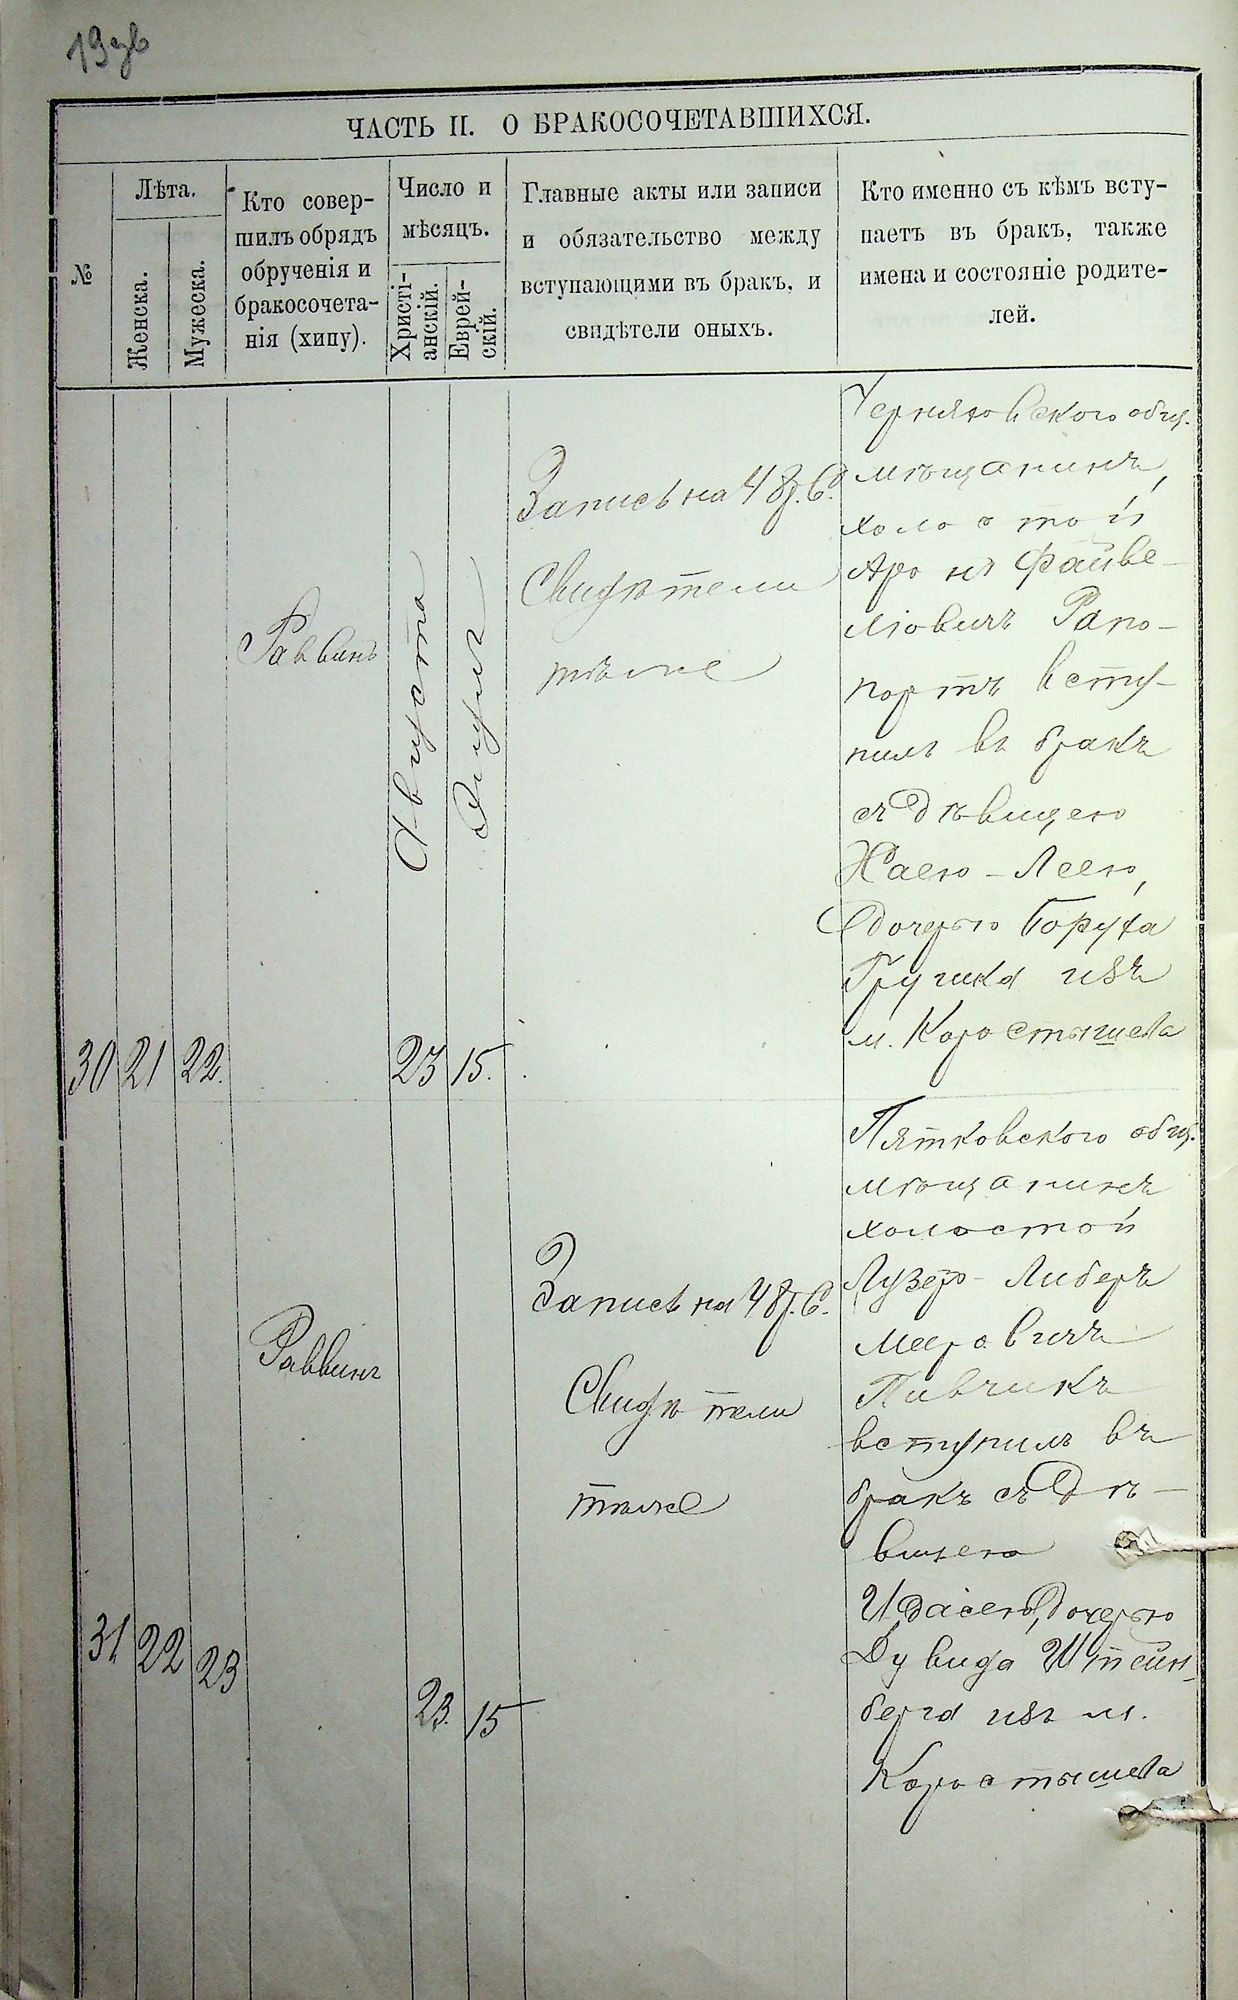 19 зв
ЧАСТЬ II. О БРАКОСОЧЕТАВШИХСЯ.
№
Лѣта.
Женска.
Мужеска.
Кто совер-
шилъ обрядъ
обрученія и
бракосочета-
нія (хипу).
Число и
мѣсяцъ.
Христі-
анскій.
Еврей-
скій.
Главные акты или записи
и обязательство между
вступающими въ бракъ, и
свидѣтели оныхъ.
Кто именно съ кѣмъ всту-
паетъ въ бракъ, также
имена и состояніе родите-
лей.
30
21
22.
Раввинъ
Августа
23
Элулъ
15.
Запись на 48 р. С.
Свидѣтели
тѣже
Черняховского общ.
мѣщанинъ,
холостой
Аронъ Файве-
лювичъ Рапо-
портъ всту-
пилъ въ бракъ
съ дѣвицею
Хаею-Леею,
дочерью Боруха
Грушка изъ
м. Коростышева
31
22
23
Раввинъ
23.
15
Запись на 48 р. С.
Свидѣтели
тѣже
Пятковского общ.
мѣщанинъ
холостой
Лузеръ-Либеръ
Мееровичъ
Пивчикъ
вступилъ въ
бракъ съ дѣ-
вицею
Идасею, дочерью
Дувида Штейн-
берга изъ м.
Коростышева